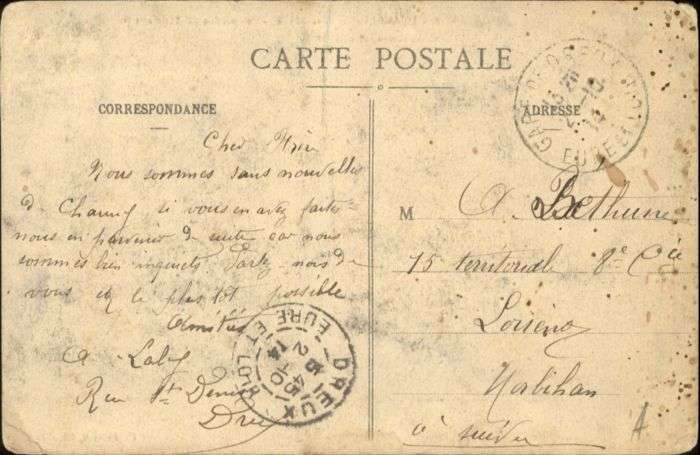 CARTE POSTALE
CORRESPONDANCE
Cher
Nous sommes sans nouvelles
de Chauny si vous en avez faites
nous en parvenir de suite car nous
sommes bien inquiets Parlez-nous de
vous le plus tôt possible
Amitiés
A
Rue St Denis
Dreux
DREUX
EURE ET LOIR
15 45
2-10
14
ADRESSE
GARE DE DREUX
EURE ET LOIR
M A Bethune
15 territorial 8e Cie
Morbihan
à suivre
A